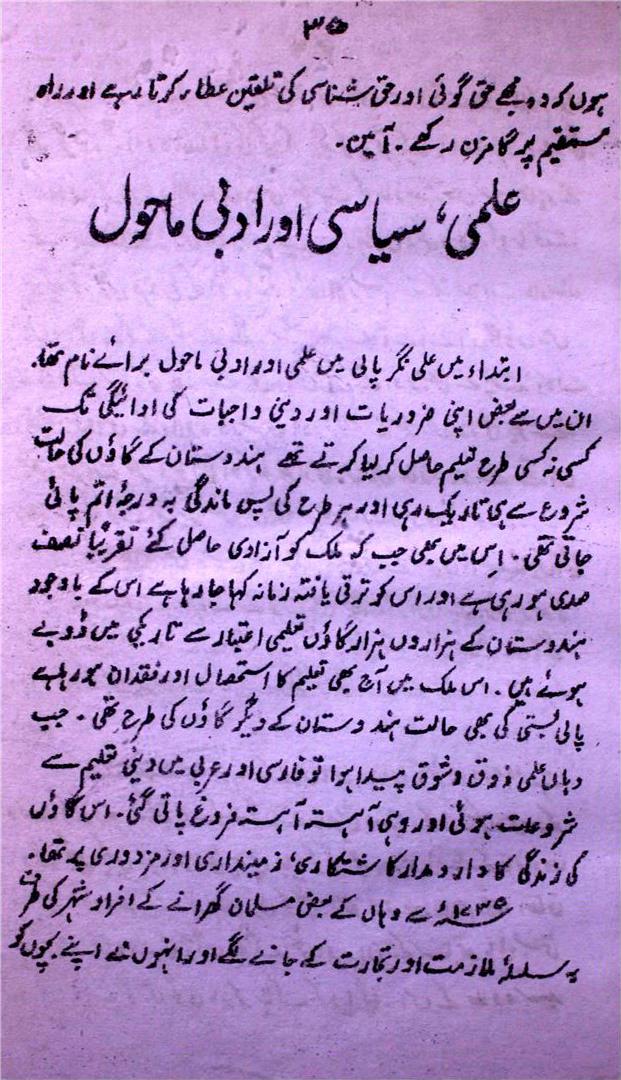 ۳۵
ہوں کہ وہ مجھے حق گوئی اور حق شناسی کی تلقین عطاء کرتا رہے اور راہ
مستقیم پر گامزن رکھے۔ آمین۔
علمی، سیاسی اور ادبی ماحول
ابتداء میں علی نگر پالی میں علمی اور ادبی ماحول برائے نام تھا۔
ان میں سے بعض اپنی ضروریات اور دینی واجبات کی ادائیگی تک
کسی نہ کسی طرح تعلیم حاصل کر لیا کرتے تھے ہندوستان کے گاؤں کی حالت
شروع سے ہی تاریک رہی اور ہر طرح کی پس ماندگی بہ درجۂ اتم پائی
جاتی تھی۔ اِس میں بھی جب کہ ملک کو آزادی حاصل کئے تقریباً نصف
صدی ہو رہی ہے اور اس کو ترقی یافتہ زمانہ کہا جا رہا ہے اس کے باوجود
ہندوستان کے ہزاروں ہزار گاؤں تعلیمی اعتبار سے تاریکی میں ڈوبے
ہوئے ہیں۔ اس ملک میں آج بھی تعلیم کا استحصال اور فقدان ہو رہا ہے
پالی بستی کی بھی حالت ہندوستان کے دیگر گاؤں کی طرح تھی۔ جب
وہاں علمی ذوق و شوق پیدا ہوا تو فارسی اور عربی میں دینی تعلیم سے
شروعات ہوئی اور وہی آہستہ آہستہ فروغ پاتی گئی۔ اس گاؤں
کی زندگی کا دارومدار کاشتکاری، زمینداری اور مزدوری پر تھا۔
۱۲۳۵ء سے وہاں کے بعض مسلمان گھرانے کے افراد شہر کی طرف
بہ سلسلۂ ملازمت اور تجارت کے جانے لگے اور انہوں نے اپنے بچوں کو